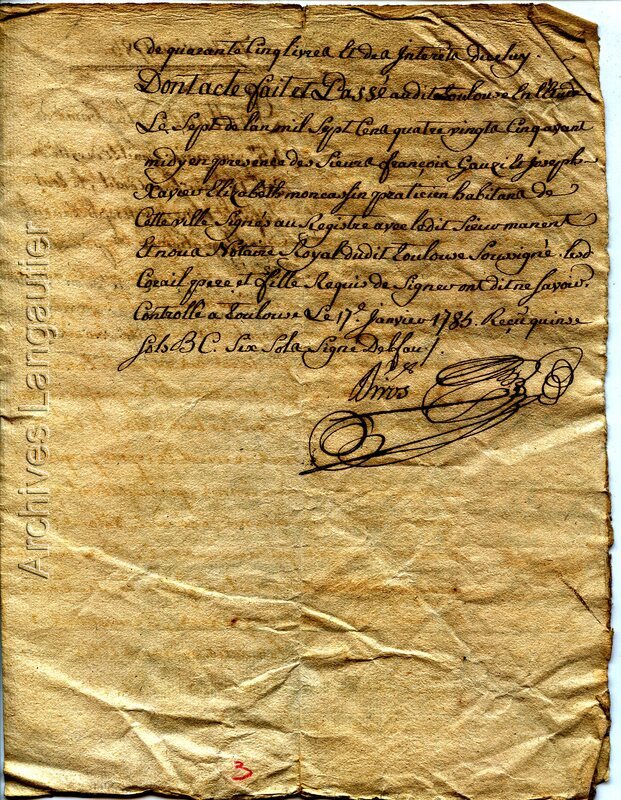 de quarante Cinq livres Et des Interets diceluy.
Dont acte fait et Passé audit toulouse
Le Sept de lan mil Sept Cens quatre vingts Cinq avant
midy en presence des Sieurs françois Gauzi & joseph
Xavier Elizabeth moncassin praticien habitans de
Cette ville Signés au Registre avec ledit Sieur manent
Et nous Notaire Royal dudit toulouse Soussigné, lesd
Corail pere et fille Requis de Signer ont dit ne Savoir.
Controllé a toulouse Le 17e janvier 1785. Reçu quinse
Sols B C. Six Sols Signé
Biros
Archives Langautier
3